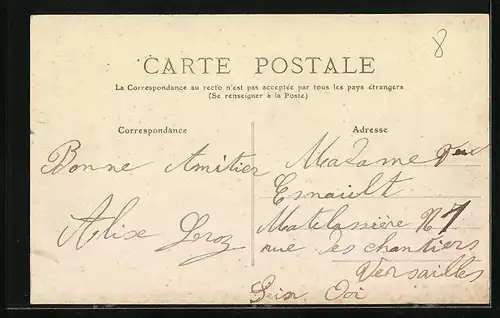 8
CARTE POSTALE
La Correspondance au recto n'est pas acceptée par tous les pays étrangers
(Se renseigner à la Poste)
Correspondance
Adresse
Bonne Amitier
Alise
Madame Veu
Esnault
Matelassière N 7
rue les chantiers
Versailles
Seine Oi